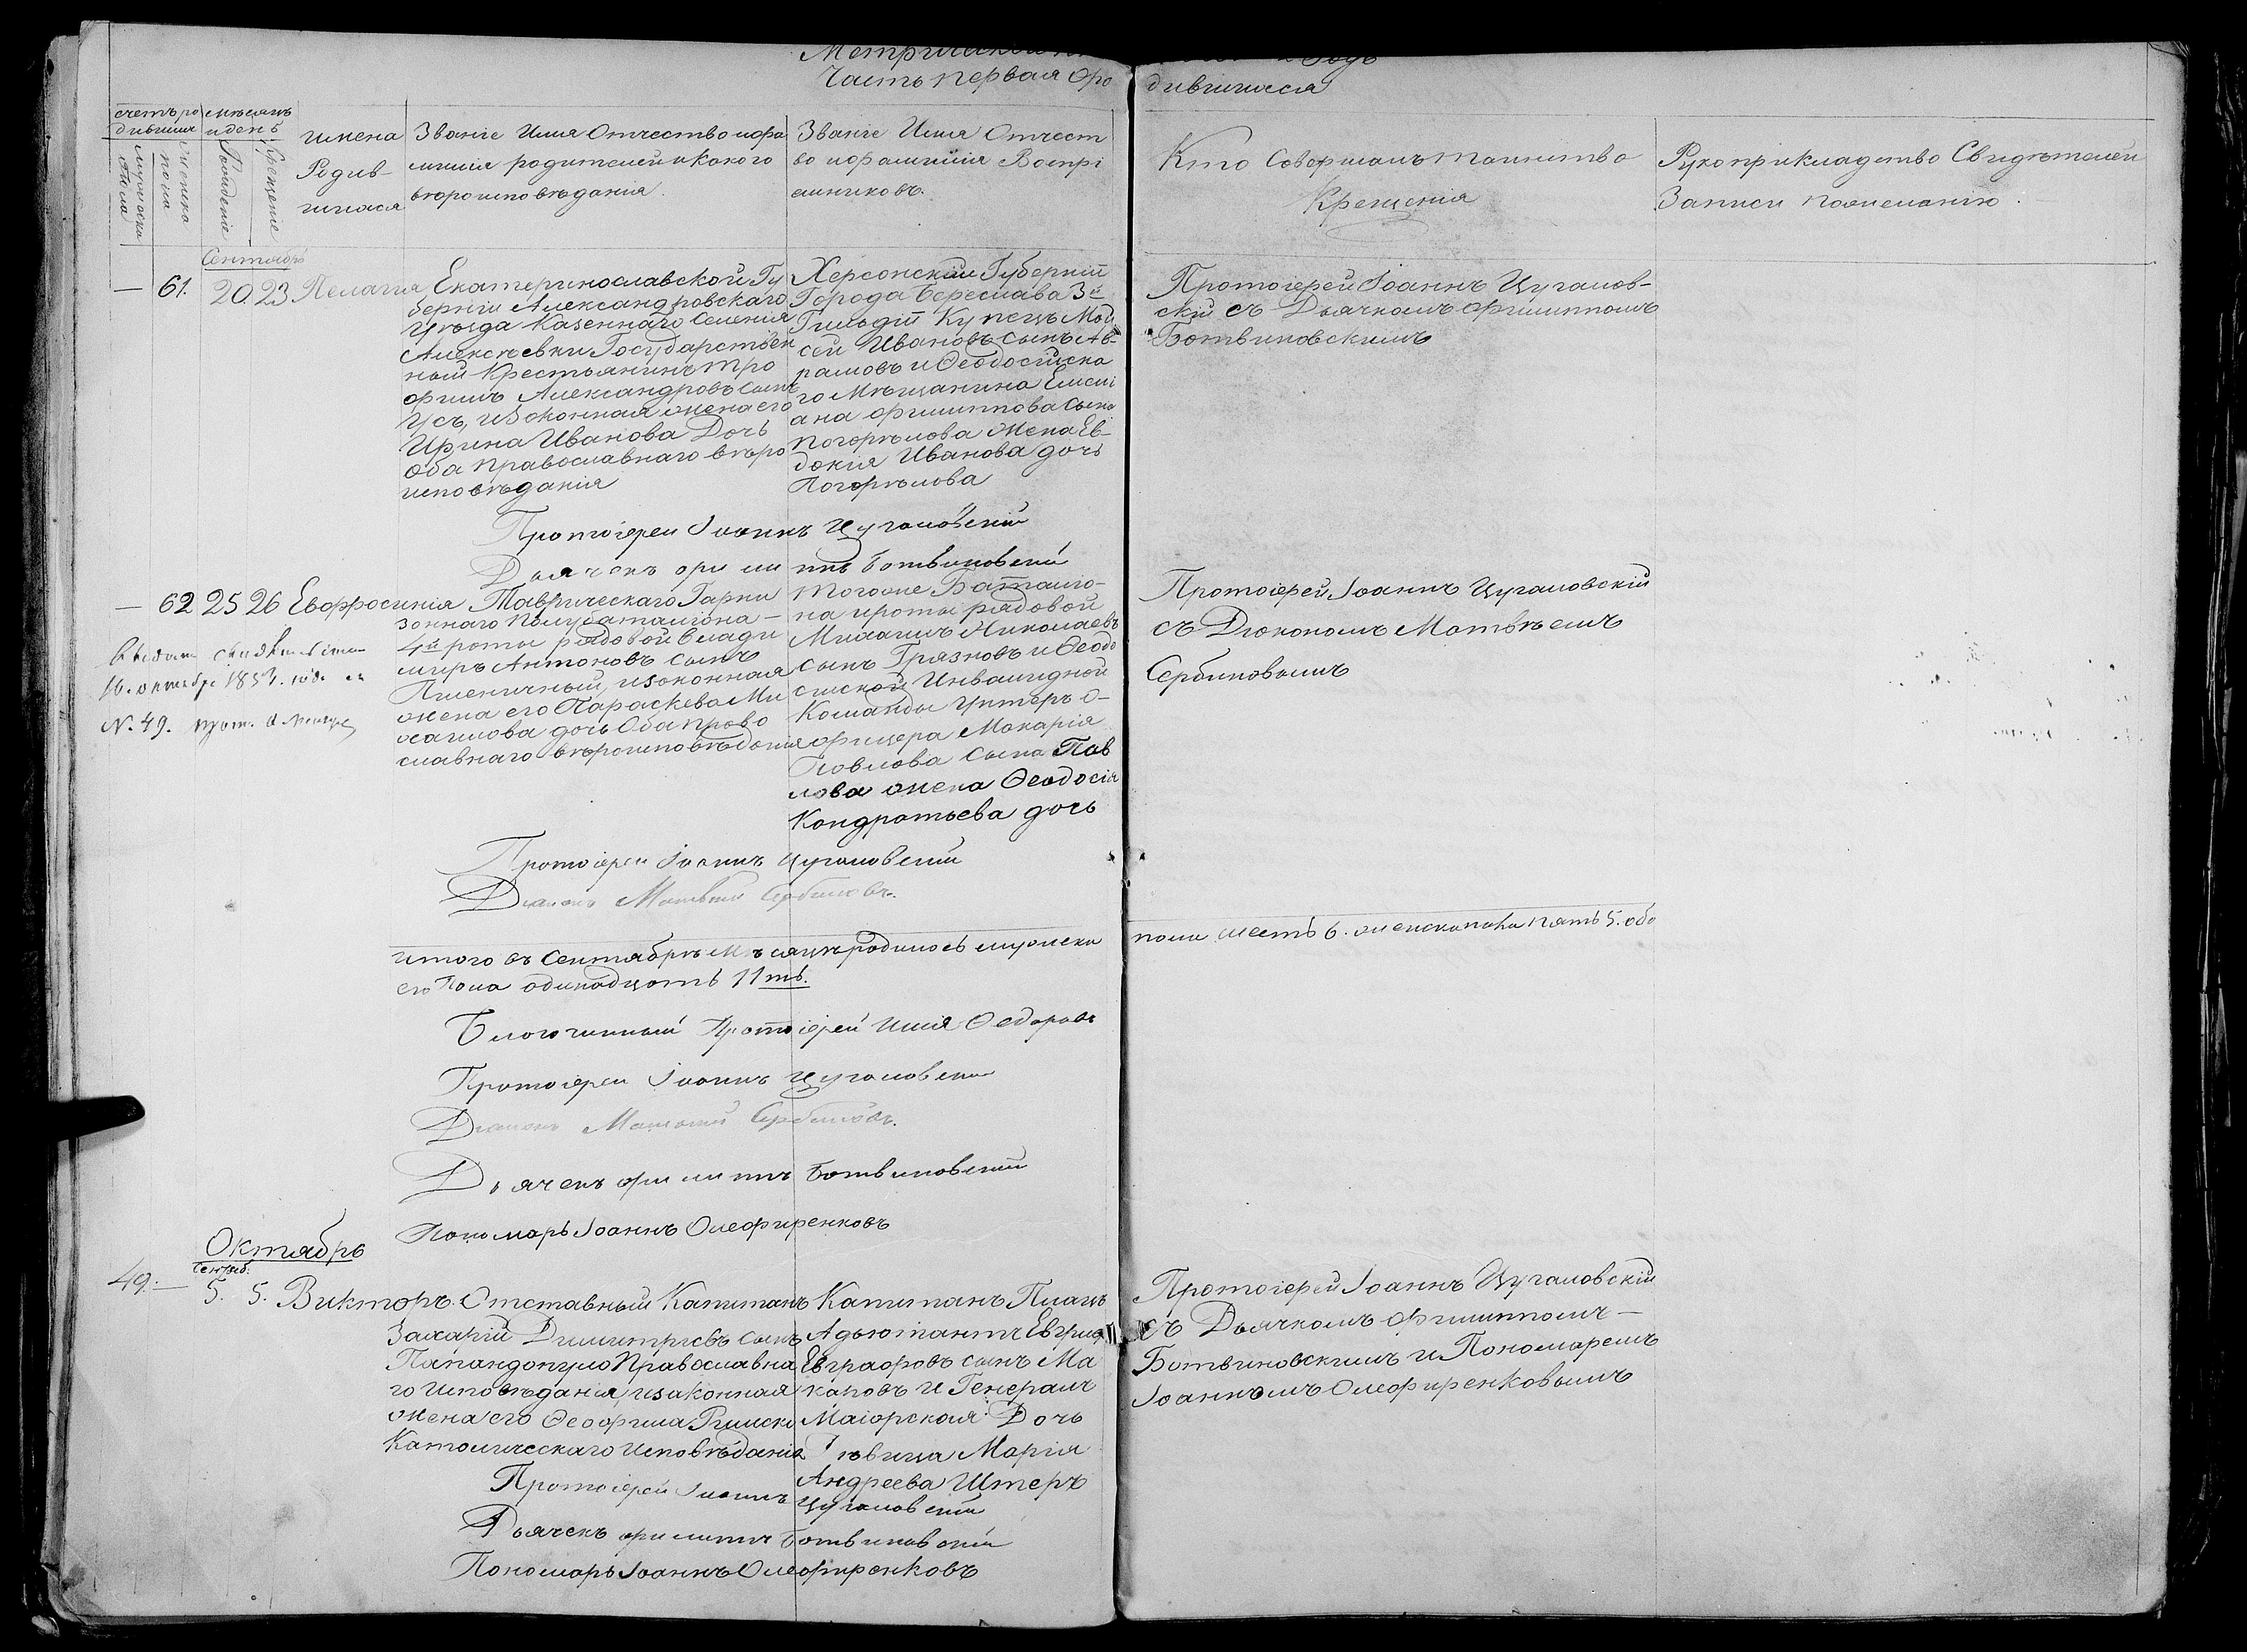 Часть первая о ро
дившихся
счетъ ро
дивших
мѣсяцъ
и день
мужеска
пола
женска
пола
Рожденіе
Крещеніе
Имена
Родив-
шихся
Званіе Имя Отчество и фа
милія родителей и какого
вѣроисповѣданія.
Званіе Имя Отчест
во и фамилія Воспрі
емниковъ.
Кто Совершалъ таинство
Крещенія
Рукоприкладство Свидѣтелей
Записи по желанію.
Сентябрь
— 61. 20 23 Пелагия
Екатеринославской Гу
берніи Александровскаго
Уѣзда Казеннаго Селенія
Алексѣевки Государствен
ный Крестьянинъ Тро
фимъ Александровъ сынъ
Усъ, и законная жена его
Ирина Иванова Дочь
Оба православнаго вѣро
исповѣданія
Херсонской Губерніи
Города Береслава 3й
Гильдіи Купецъ Мои
сей Ивановъ сынъ Ав-
рамовъ и Ѳеодосійска
го Мѣщанина Емелі
ана Филиппова Сына
Погорѣлова Жена Ев-
докія Иванова дочь
Погорѣлова
Протоіерей Іоаннъ Цугаловъ-
скій съ Дьячкомъ Филиппомъ
Ботвиновскимъ
Протоіерей Іоаннъ Цугаловскій
Дьячекъ Филиппъ Ботвиновскій
— 62 25 26 Евфросинія
Таврическаго Гарни
зоннаго Полубаталіона —
4й роты рядовой Влади
миръ Антоновъ сынъ
Пшеничный, и законная
жена его Параскева Ми
хаилова дочь Оба право
славнаго вѣроисповѣданія
Тогоже Баталіо-
на и роты рядовой
Михаилъ Николаевъ
сынъ Грязновъ и Ѳеодо
сійской Инвалидной
Команды Унтеръ о-
фицера Макарія
Павлова Сына Пав
лова жена Ѳеодосія
Кондратьева дочь
Протоіерей Іоаннъ Цугаловскій
съ Дiокономъ Матвѣемъ
Сербиновымъ
16. октября 185
N. 49.
Протоіерей Іоаннъ Цугаловскій
Діаконъ Матвѣй Сербиновъ.
Итого въ Сентябрѣ Мѣсяцѣ родилось мужеска
пола шесть 6. женска пола пять 5. обо
его Пола одинадцать 11ть.
Благочинный Протоіерей Илія Ѳедоровъ
Протоіерей Іоаннъ Цугаловскій
Діаконъ Матвѣй Сербиновъ.
Дьячекъ Филиппъ Ботвиновскій
Пономарь Іоаннъ Олефиренковъ
Октябрь
Сентяб.
49. — 5. 5. Викторъ
Отставный Капитанъ
Захарій Димитріевъ сынъ
Папандопуло Православна
го Исповѣданія, и законная
жена его Ѳеофила Римско
Католическаго Исповѣданія
Капитанъ Плацъ
Адьютантъ Евграф
Евграфовъ сынъ Ма
каровъ и Генералъ
Маіорская Дочь
Дѣвица Марія
Андреева Штеръ
Протоіерей Іоаннъ Цугаловскій
съ Дьячкомъ Филиппомъ —
Ботвиновскимъ и Пономаремъ
Іоанномъ Олефиренковымъ
Протоіерей Іоаннъ Цугаловскій
Дьячекъ Филиппъ Ботвиновскій
Пономарь Іоаннъ Олефиренковъ